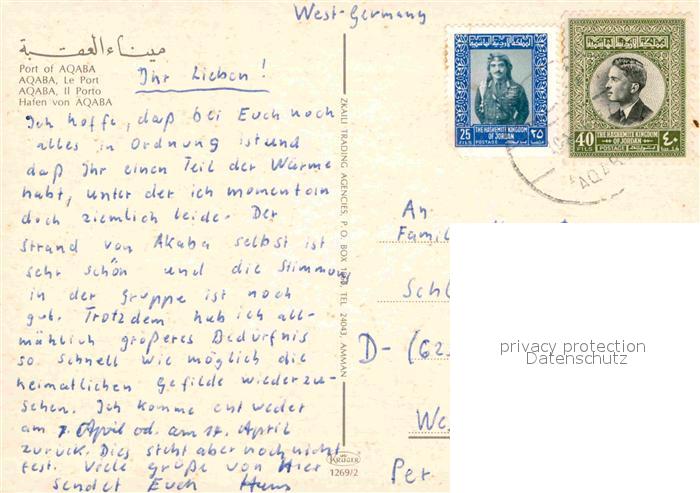 West-Germany
ميناء العقبة
Port of AQABA
AQABA, Le Port
AQABA, Il Porto
Hafen von AQABA
Ihr Lieben!
Ich hoffe, daß bei Euch noch
alles in Ordnung ist und
daß Ihr einen Teil der Wärme
habt, unter der ich momentan
doch ziemlich leide. Der
Strand von Akaba selbst ist
sehr schön und die Stimmung
in der Gruppe ist noch
gut. Trotzdem hab ich all-
mählich größeres Bedürfnis
so schnell wie möglich die
heimatlichen Gefilde wiederzu-
sehen. Ich komme entweder
am 7. April od. am April
zurück. Dies steht aber noch nicht
fest. Viele Grüße von Hier
sendet Euch
ZKAILI TRADING AGENCIES, P. O. BOX TEL 24043, AMMAN
KRÜGER
1269/2
المملكة الاردنية الهاشمية
25
FILS
THE HASHEMITE KINGDOM
OF JORDAN
POSTAGE
٢٥
المملكة الاردنية الهاشمية
40
FILS
THE HASHEMITE KINGDOM
OF JORDAN
POSTAGE
٤٠
AQAB
An
Famil
Schl
D- (62
We
Per
privacy protection
Datenschutz